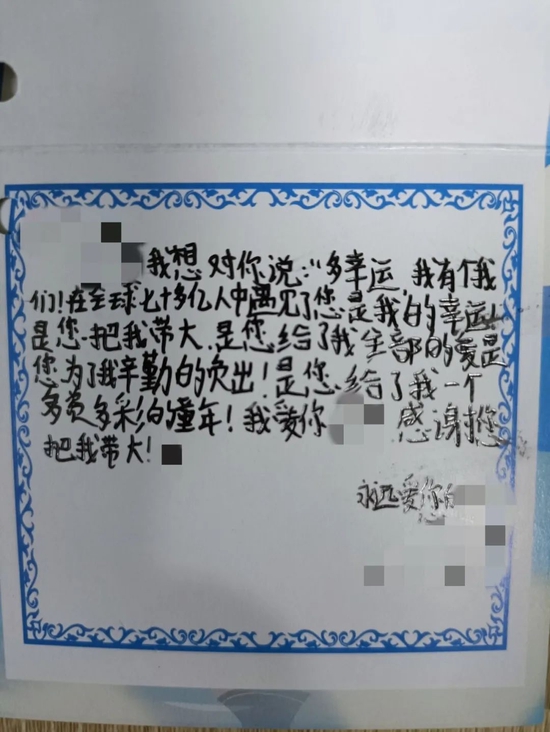 我想对你说:“多幸运,我有个我
们!在全球七十多亿人中遇见了您是我的幸运!
是您把我带大,是您给了我全部的爱是
您为了我辛勤的负出!是您给了我一个
多资多彩的童年!我爱你 感谢您
把我带大!
永远爱您的